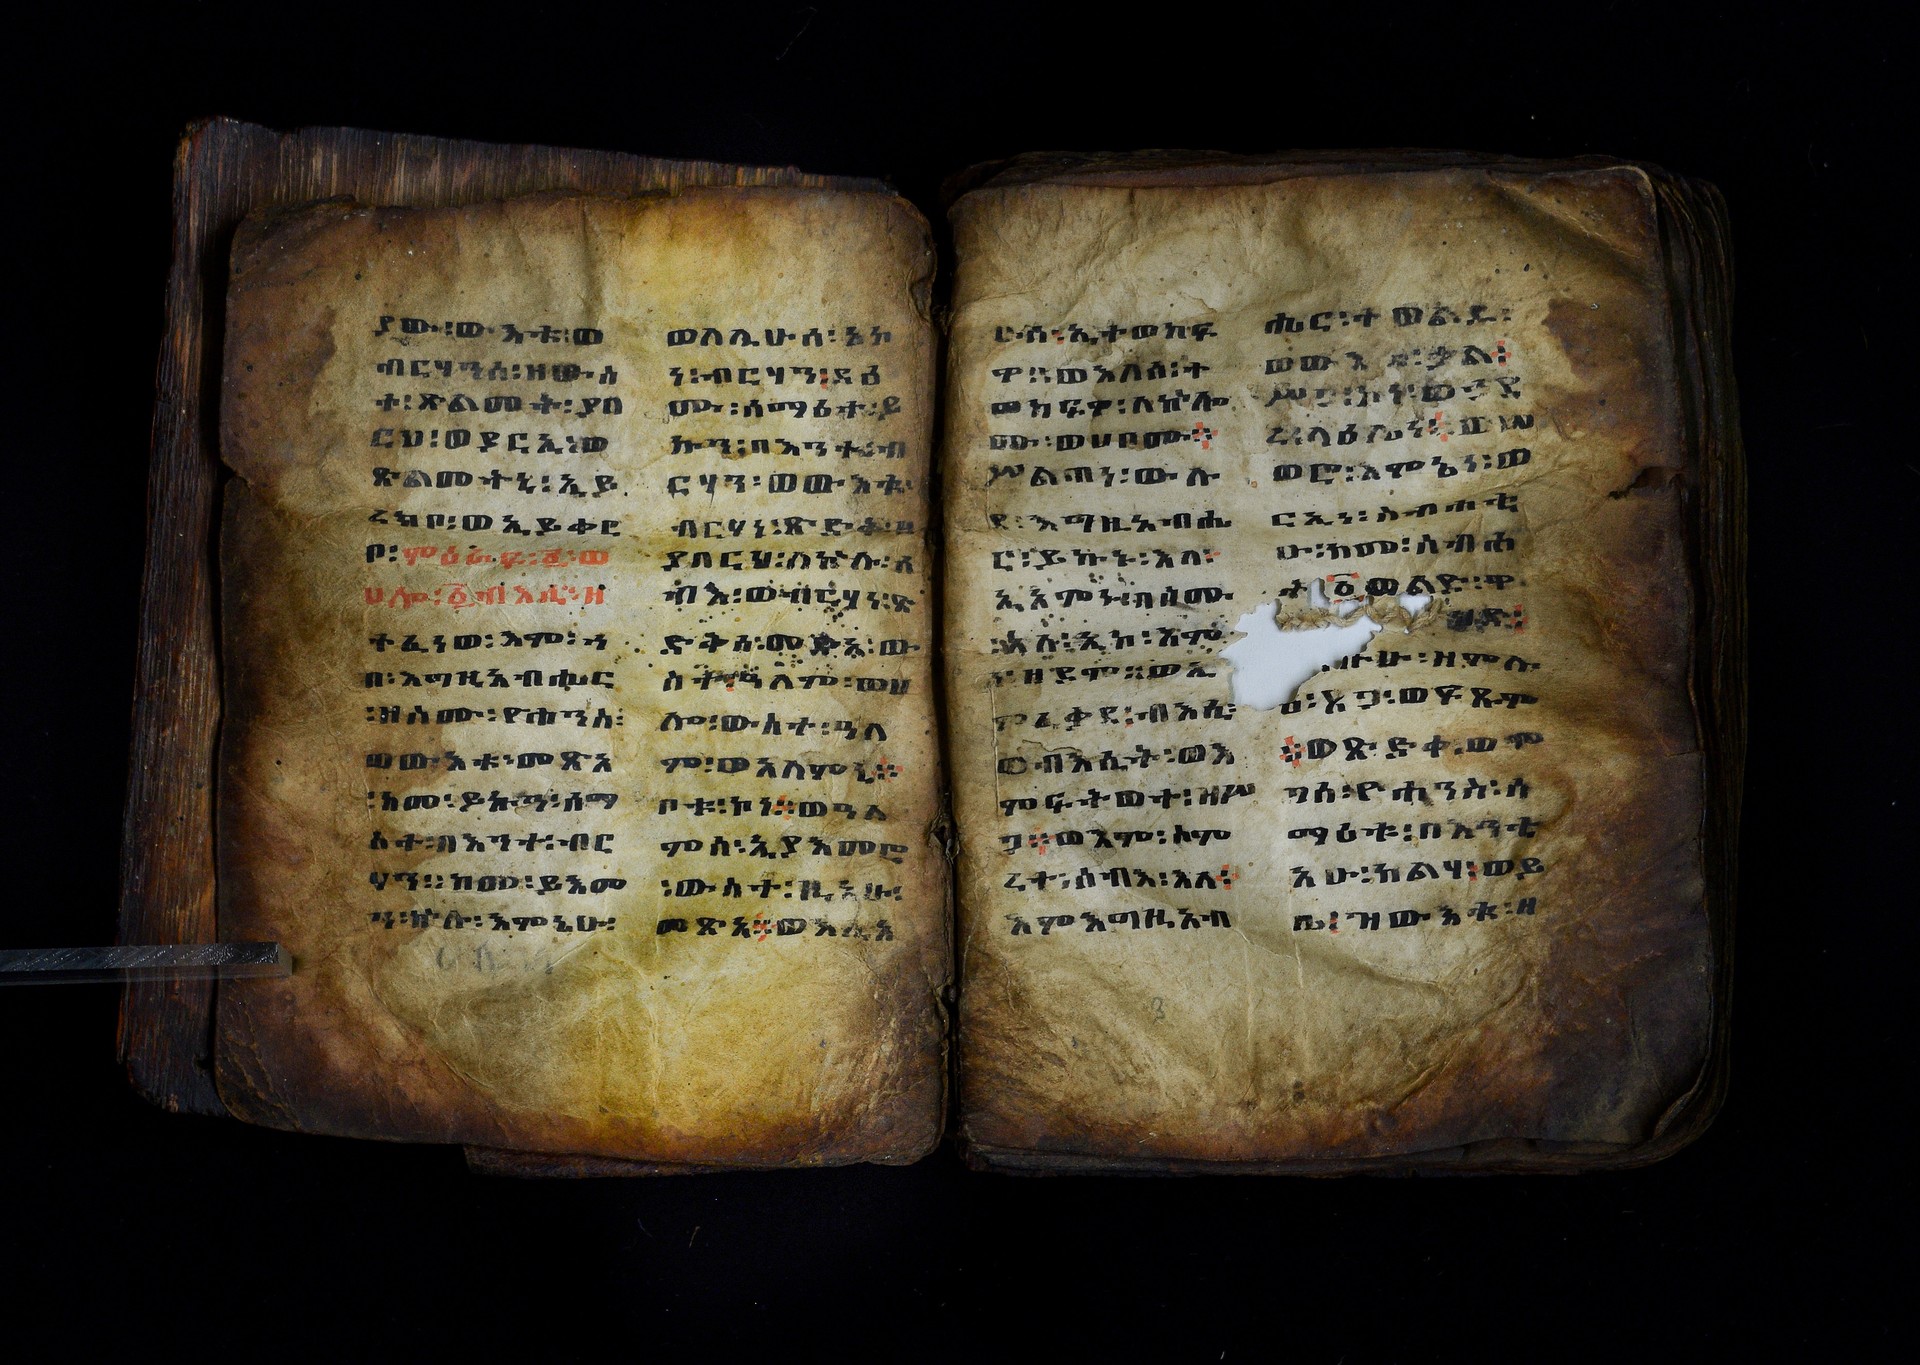 ያው፡ውእቱ፡ወ
ብርሃንሰ፡ዘውስ
ተ፡ጽልመት፡ያበ
ርህ፡ወያርኢ፡ወ
ጽልመትኒ፡ኢይ
ረክቦ፡ወኢይቀር
ቦ፡ምዕራፍ፡፩፡ወ
ሀሎ፡፩ብእሲ፡ዘ
ተፈነወ፡እም፡ኀ
በ፡እግዚአብሔር
፡ዘስሙ፡ዮሐንስ፡
ወውእቱ፡መጽአ
፡ከመ፡ይኩን፡ሰማ
ዕተ፡በእንተ፡ብር
ሃን።ከመ፡ይእመ
ኑ፡ኵሉ፡እምኔሁ፡
ወለሊሁሰ፡ኢኮ
ነ፡ብርሃነ፡ዳዕ
ሙ፡ሰማዕተ፡ይ
ኩን፡በእንተ፡ብ
ርሃን፡ወውእቱ፡
ብርሃነ፡ጽድቅ፡ዘ
ያበርህ፡ለኵሉ፡ሰ
ብእ፡ወብርሃነ፡ጽ
ድቅሰ፡መጽአ፡ው
ስተ፡ዓለም፡ወሀ
ሎ፡ውስተ፡ዓለ
ም፡ወዓለምኒ፨
ቦቱ፡ኮነ።ወዓለ
ምሰ፡ኢያእመሮ
፡ውስተ፡ዚአሁ፡
መጽአ።ወእሊአ
ሁሰ፡ኢተወክፍ
ዎ።ወእለሰ፡ተ
መክፍዎ፡ለኵሎ
ሙ፡ወሀቦሙ፨
ሥልጣነ፡ውሉ
ደ፡እግዚአብሔ
ር፡ይኩኑ፡እለ፡
ኢአምኑ፡በስሙ
፡እሉ፡ኢኮ፡እም
ነ፡ዘደም።ወኢ
ምፈቃደ፡ብእሲ፡
ወብእሲት፡ወእ
ምፍትወተ፡ዘሥ
ጋ።ወእም፡ስም
ረተ፡ሰብእ፡አለ፡
እምእግዚአብ
ሔር፡ተወልዱ፡
ቃል፡
ሥጋ፡ኮነ፡ወኀደ
ረ፡ላዕሌነ፡ወሠ
ወሮ፡እምኔነ፡ወ
ርኢነ፡ስብሐቲ
ሁ፡ከመ፡ስብሐ
ተ፩ወልድ፡ዋ
ሕድ፡
ዘምሉ
ዕ፡ጸጋ፡
፨ወጽድቀ፡ወም
ግሰ፡ዮሐንስ፡ሰ
ማዕቱ፡በእንቲ
አሁ፡ከልሃ፡ወይ
ቤ፡ዝውእቱ፡ዘ
3